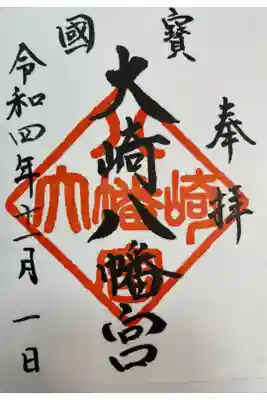 奉拝
國寶
大崎八幡宮
大崎八幡宮
令和四年十一月一日